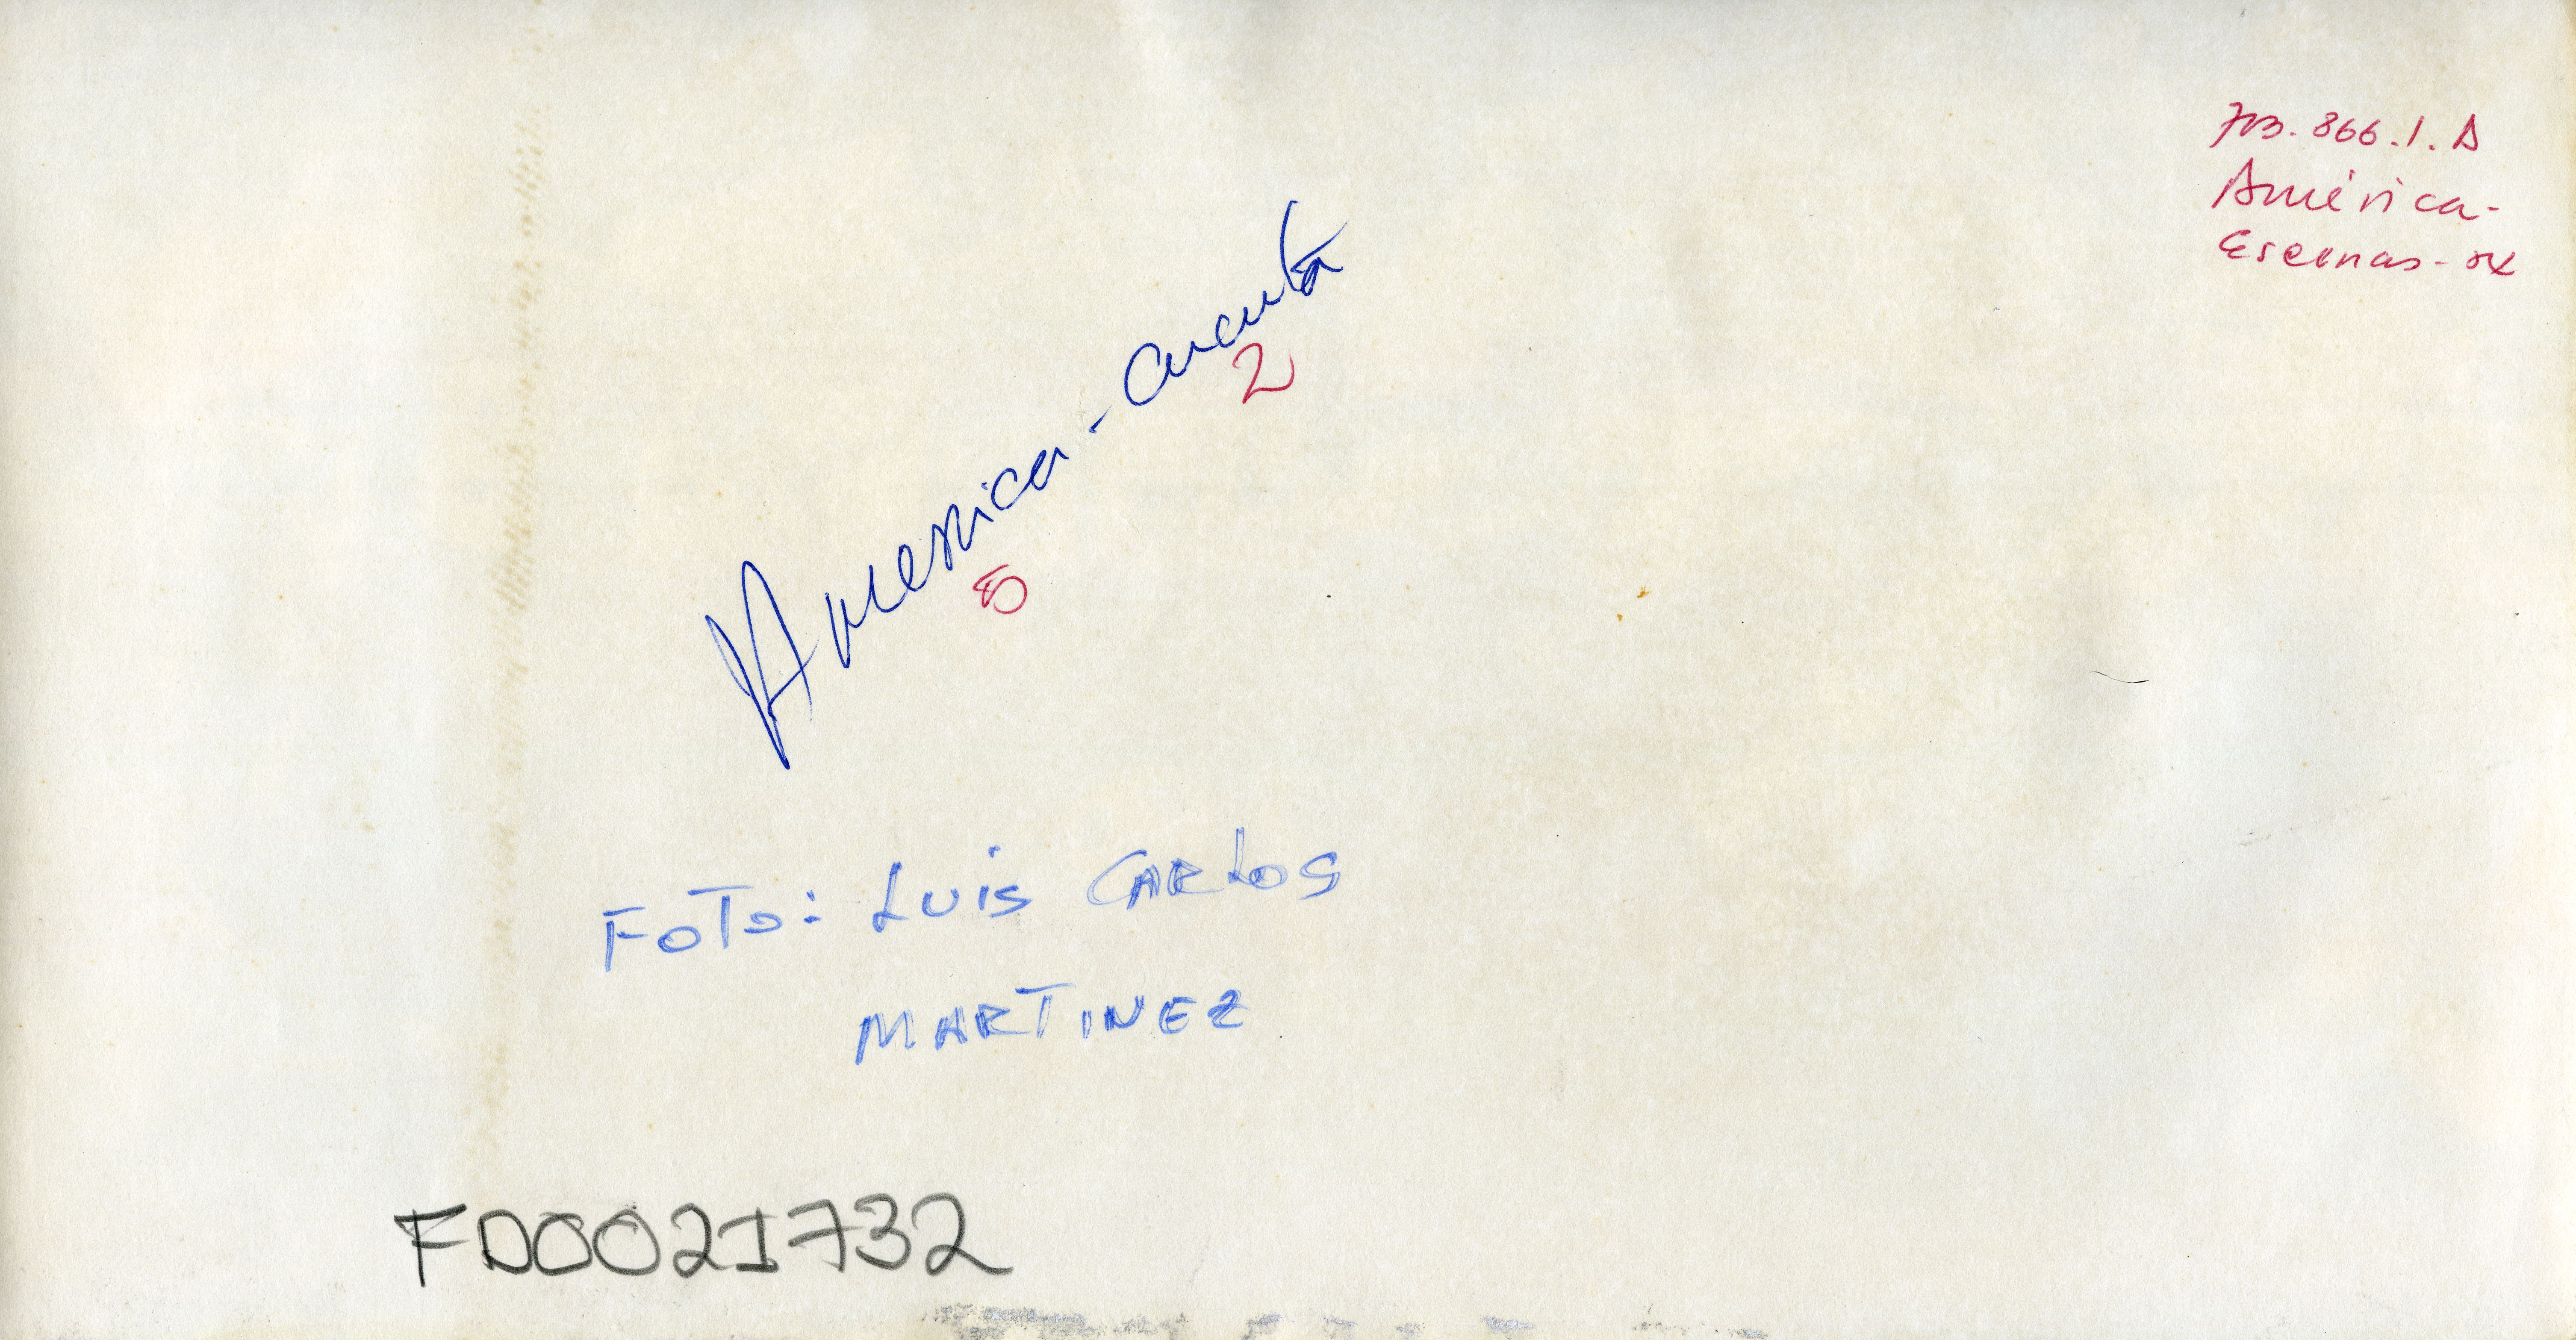 América-
Escenas-
America-Cucuta
2
5
FOTO: LUIS CARLOS
MARTINEZ
FD0021732